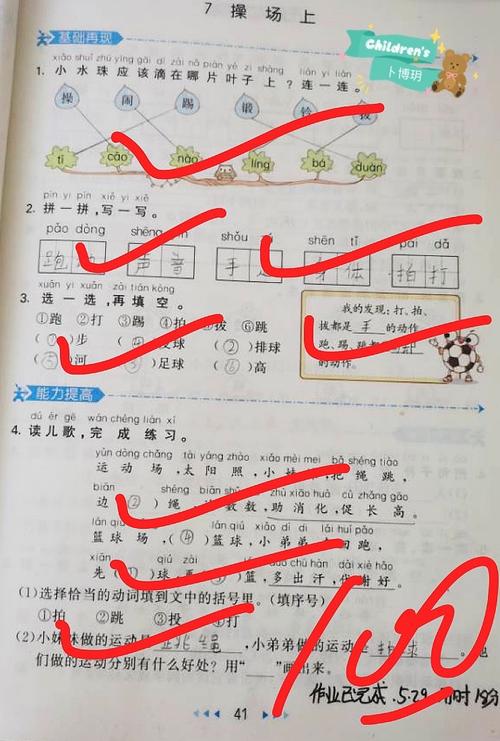 7 操场上
基础再现
Children's
卜博玥
xiǎo shuǐ zhū yīng gāi dī zài nǎ piàn yè zi shàng lián yi lián
1. 小水珠应该滴在哪片叶子上？连一连。
操 闹 踢 锻 铃 拔
tī cāo nào líng bá duàn
pīn yi pīn xiě yi xiě
2. 拼一拼,写一写。
pǎo dòng shēng shǒu shēn tǐ pāi dǎ
跑 声音 手 体 拍打
xuǎn yi xuǎn zài tián kòng
3. 选一选,再填空。
①跑 ②打 ③踢 ④拍 ⑤拔 ⑥跳
步 球 (②)排球
河 足球 (⑥)高
我的发现:打、拍、
拔都是 手 的动作,
跑、踢、跳都
的动作。
能力提高
dú ér gē wán chéng liàn xí
4. 读儿歌,完成练习。
yùn dòng chǎng tài yáng zhào xiǎo mèi mei bǎ shéng tiào
运动场,太阳照,小妹 把绳跳,
biān shéng biān zhù xiāo huà cù zhǎng gāo
边(②)绳 数数,助消化,促长高。
lán qiú lán qiú xiǎo dì di lái huí pǎo
篮球场,(④)篮球,小弟弟 回跑,
xiān qiú zài duō chū hàn dài xiè hǎo
先 球,再 篮,多出汗,代谢好。
(1)选择恰当的动词填到文中的括号里。(填序号)
①拍 ②跳 ③投 ④打
(2)小妹妹做的运动是 跳绳 ,小弟弟做的运动是 球 。他
们做的运动分别有什么好处？用“____”画出来。
100
作业已完成.5.29 用时18分
41